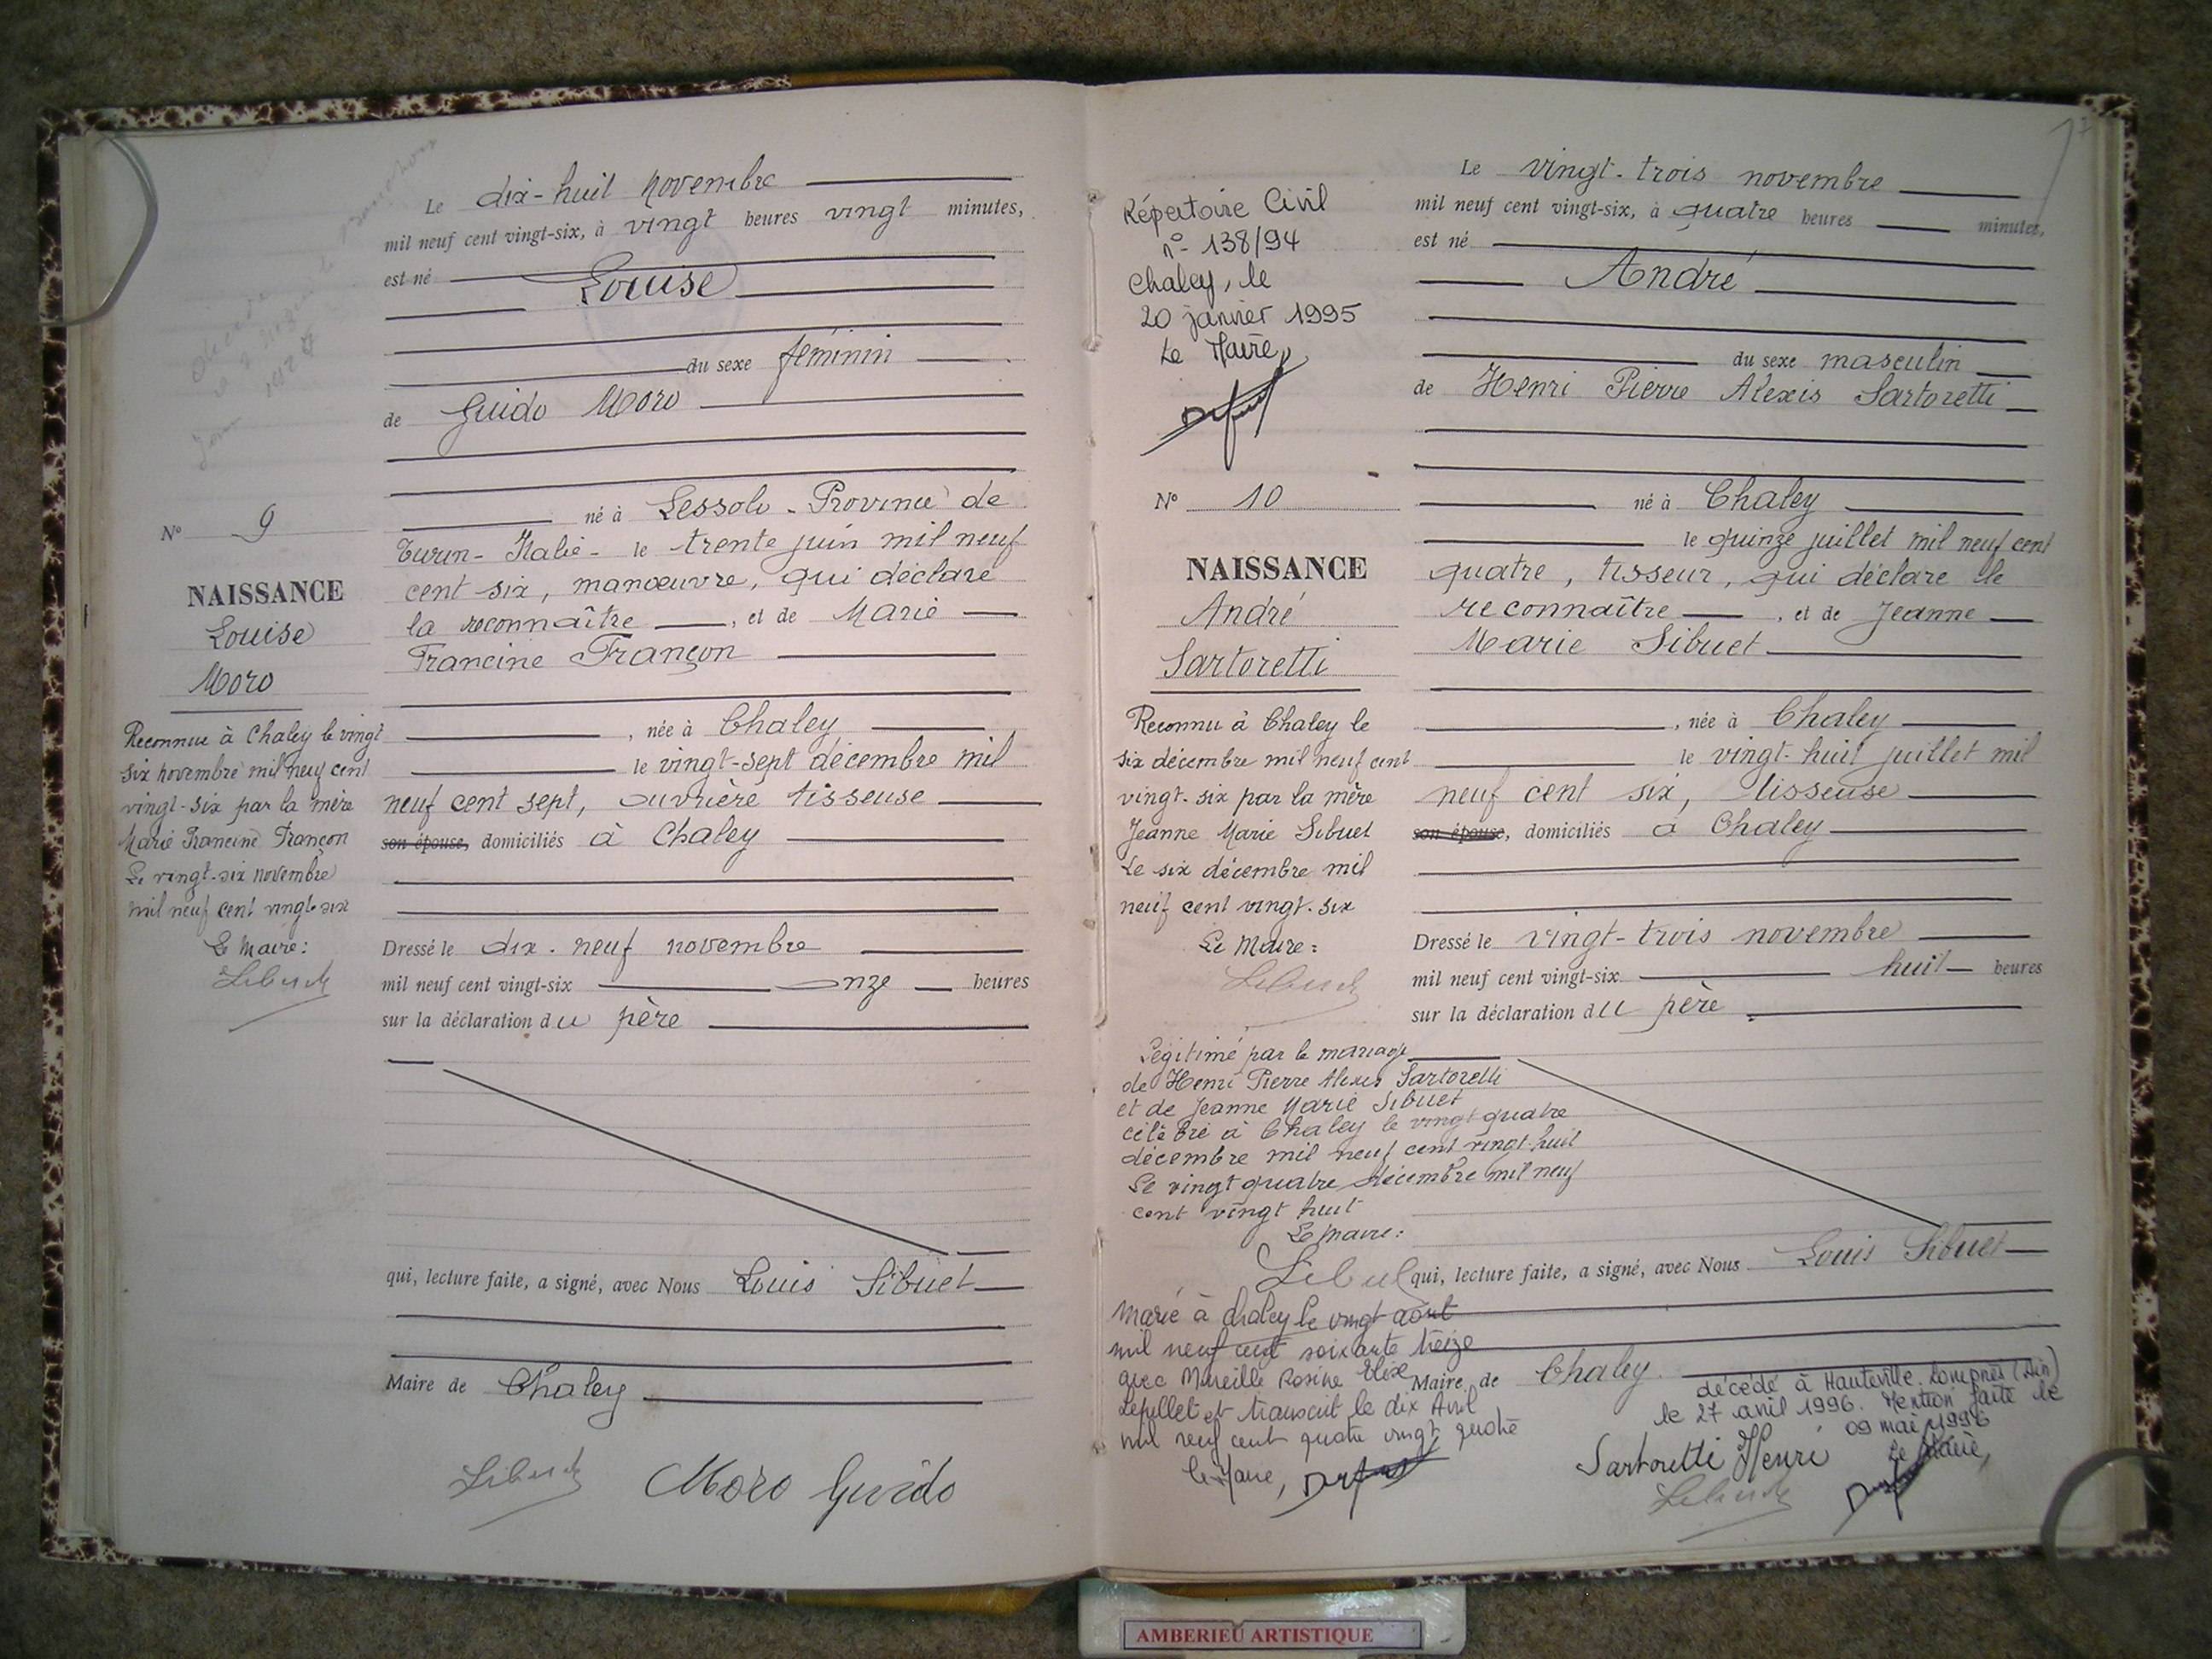 Le dix-huit novembre
mil neuf cent vingt-six, à vingt heures vingt minutes,
est né
Louise
du sexe féminin
de Guido Moro
né à Lessolo - Province de
Turin - Italie - le trente juin mil neuf
cent six, manœuvre, qui déclare
la reconnaître, et de Marie
Francine Françon
, née à Chaley
le vingt-sept décembre mil
neuf cent sept, ouvrière tisseuse
son épouse, domiciliés à Chaley
Dressé le dix-neuf novembre
mil neuf cent vingt-six onze heures
sur la déclaration du père
qui, lecture faite, a signé, avec Nous Louis Sibuet
Maire de Chaley
Moro Guido
N° 9
NAISSANCE
Louise
Moro
Reconnue à Chaley le vingt
six novembre mil neuf cent
vingt-six par la mère
Marie Francine Françon
Le vingt-six novembre
mil neuf cent vingt-six
Le Maire:
Répertoire Civil
n° 138/94
Chaley, le
20 janvier 1995
Le Maire,
N° 10
NAISSANCE
André
Sartoretti
Reconnu à Chaley le
six décembre mil neuf cent
vingt-six par la mère
Jeanne Marie Sibuet
Le six décembre mil
neuf cent vingt-six
Le Maire:
Légitimé par le mariage
de Henri Pierre Alexis Sartoretti
et de Jeanne Marie Sibuet
célébré à Chaley le vingt quatre
décembre mil neuf cent vingt-huit
Le vingt quatre décembre mil neuf
cent vingt huit
Le Maire:
Marié à Chaley le vingt août
mil neuf cent soixante treize
avec Mireille Rosine Elise
et transcrit le dix Avril
mil neuf cent quatre vingt quatre
le Maire,
Le vingt-trois novembre
mil neuf cent vingt-six, à quatre heures minutes,
est né
André
du sexe masculin
de Henri Pierre Alexis Sartoretti
né à Chaley
le quinze juillet mil neuf cent
quatre, tisseur, qui déclare le
reconnaître, et de Jeanne
Marie Sibuet
, née à Chaley
le vingt-huit juillet mil
neuf cent six, tisseuse
son épouse, domiciliés à Chaley
Dressé le vingt-trois novembre
mil neuf cent vingt-six huit heures
sur la déclaration du père
qui, lecture faite, a signé, avec Nous Louis Sibuet
Maire de Chaley
décédé à Hauteville-Lompnès (Ain)
le 27 avril 1996. Mention faite le
09 mai 1996
Le Maire,
Sartoretti Henri
AMBERIEU ARTISTIQUE